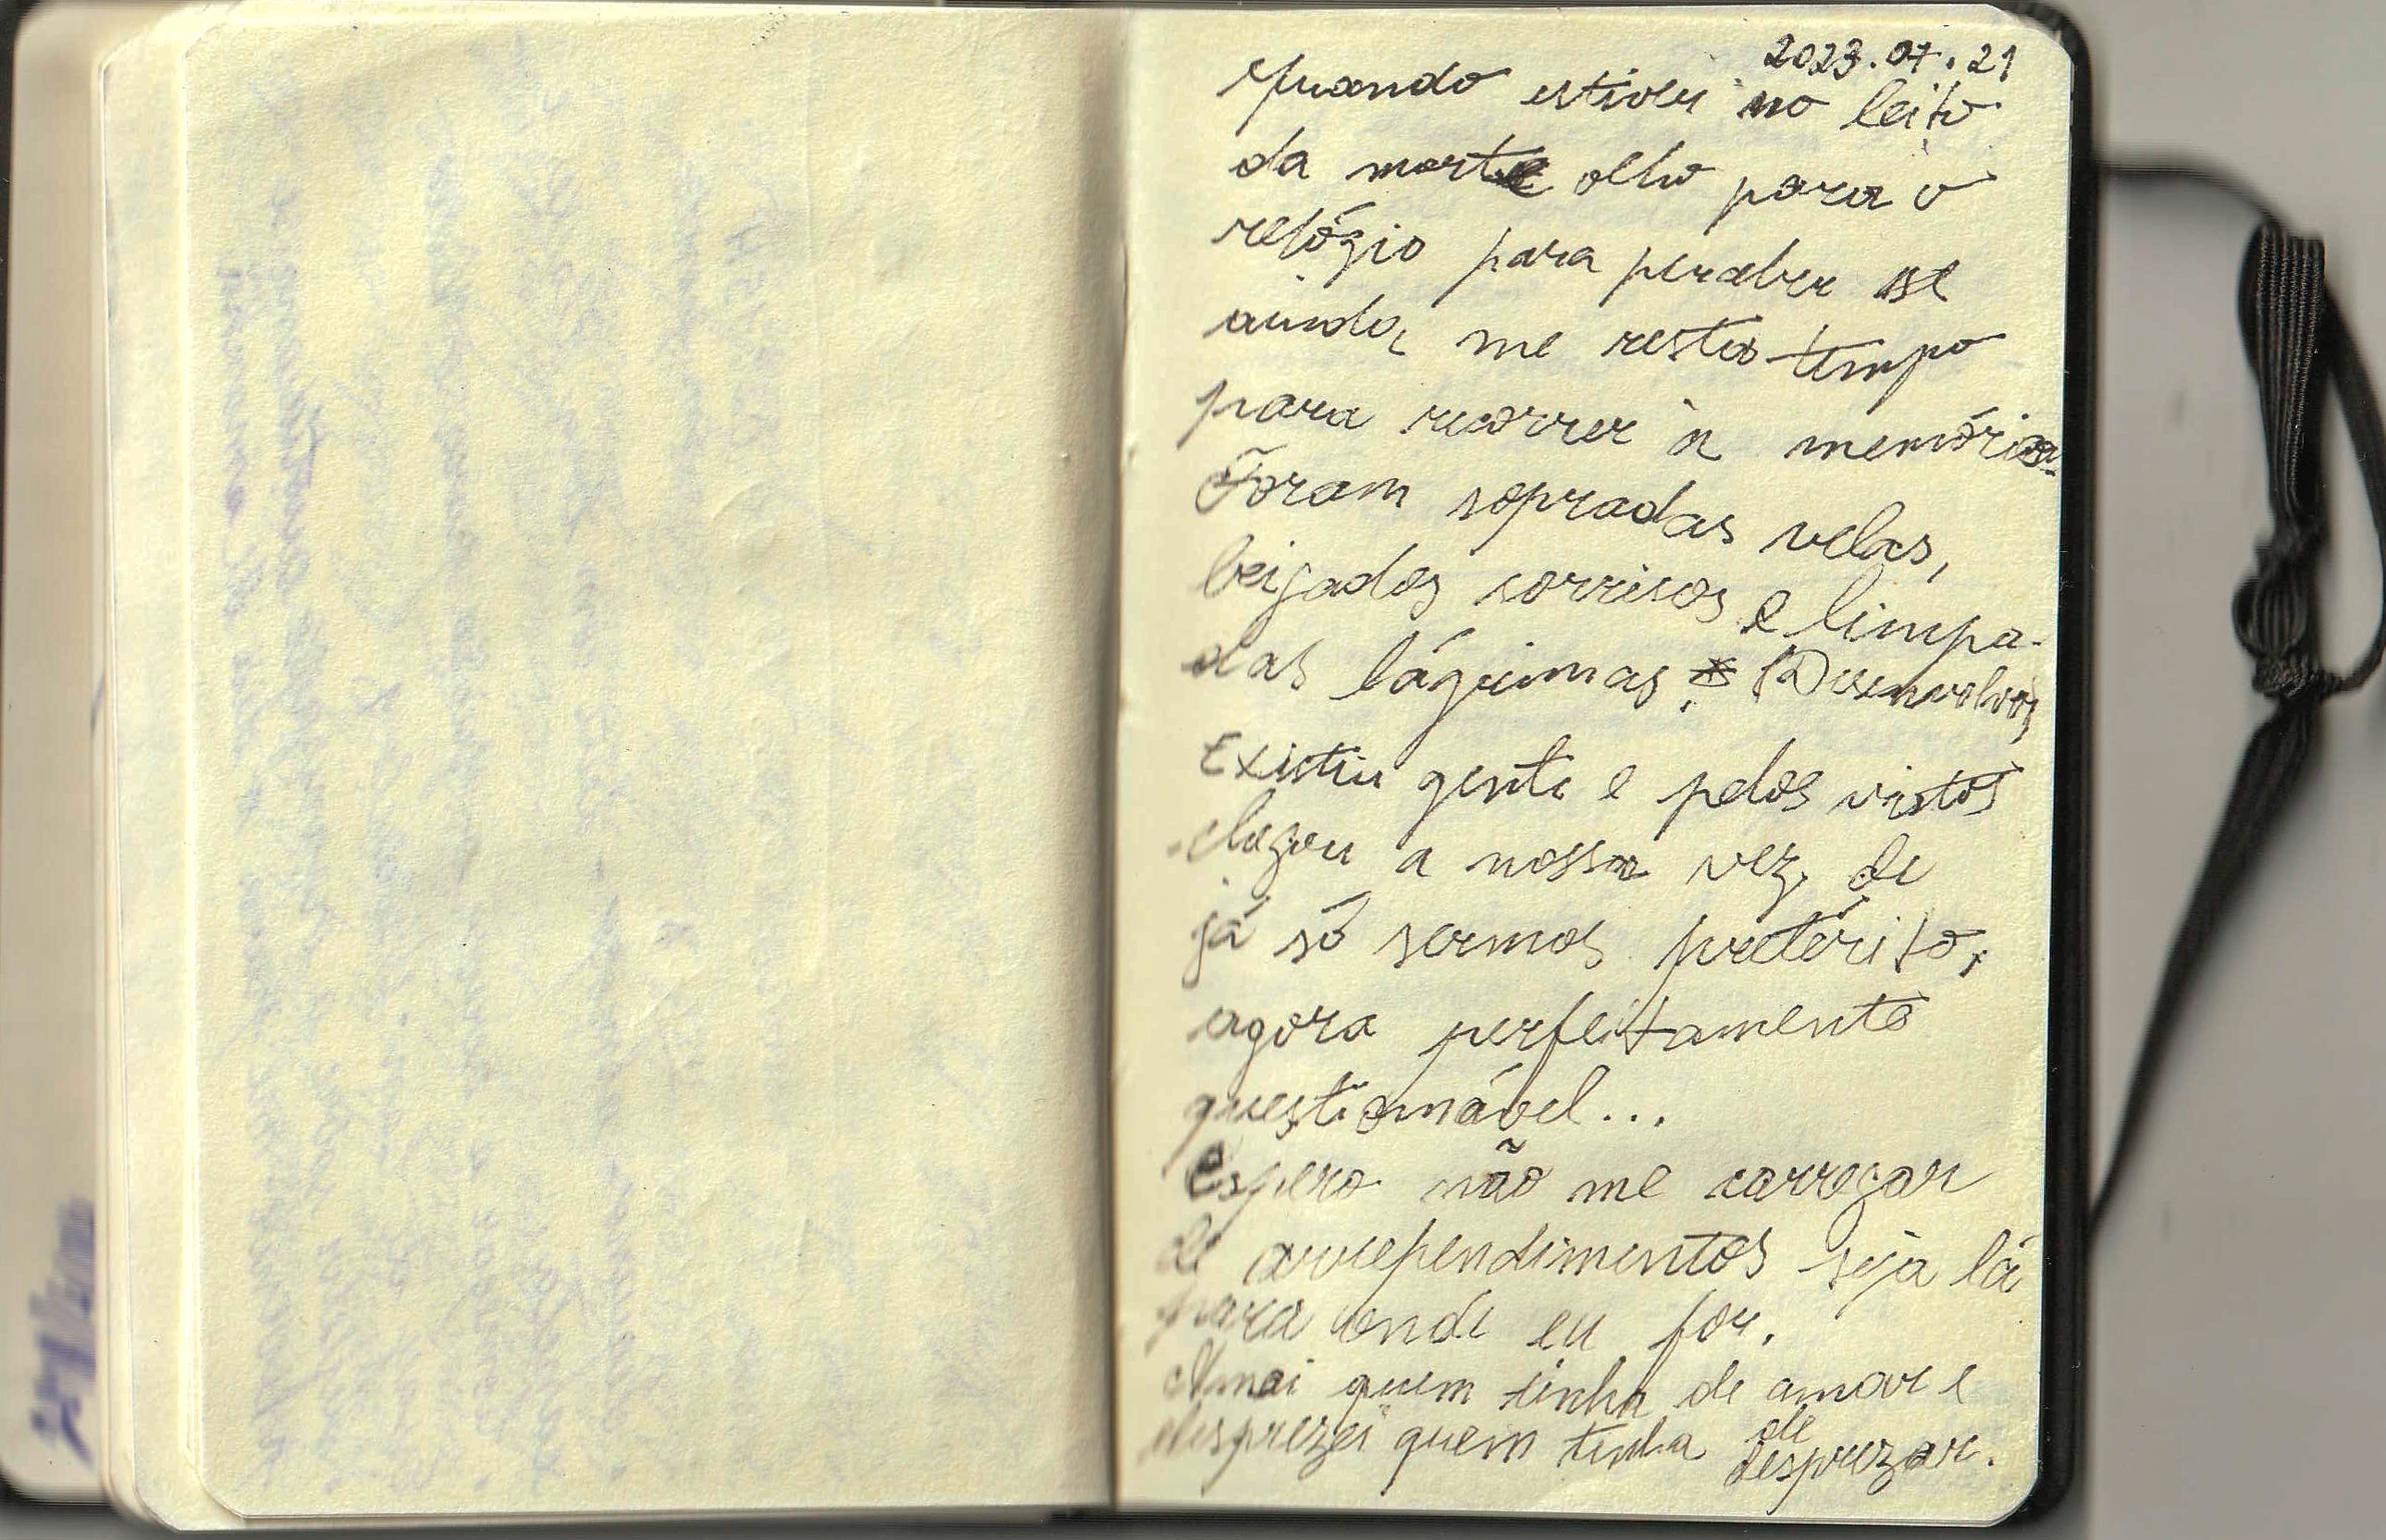 2023.07.21
Quando estiver no leito
da morte olho para o
relógio para perceber se
ainda me resta tempo
para recorrer à memória.
Foram sopradas velas,
beijados sorrisos e limpa-
das lágrimas. (Desenvolver)
Existiu gente e pelos vistos
chegou a nossa vez, de
já só sermos pretérito,
agora perfeitamente
questionável...
Espero não me carregar
de arrependimentos seja lá
para onde eu for.
Amei quem tinha de amar e
desprezei quem tinha de
desprezar.